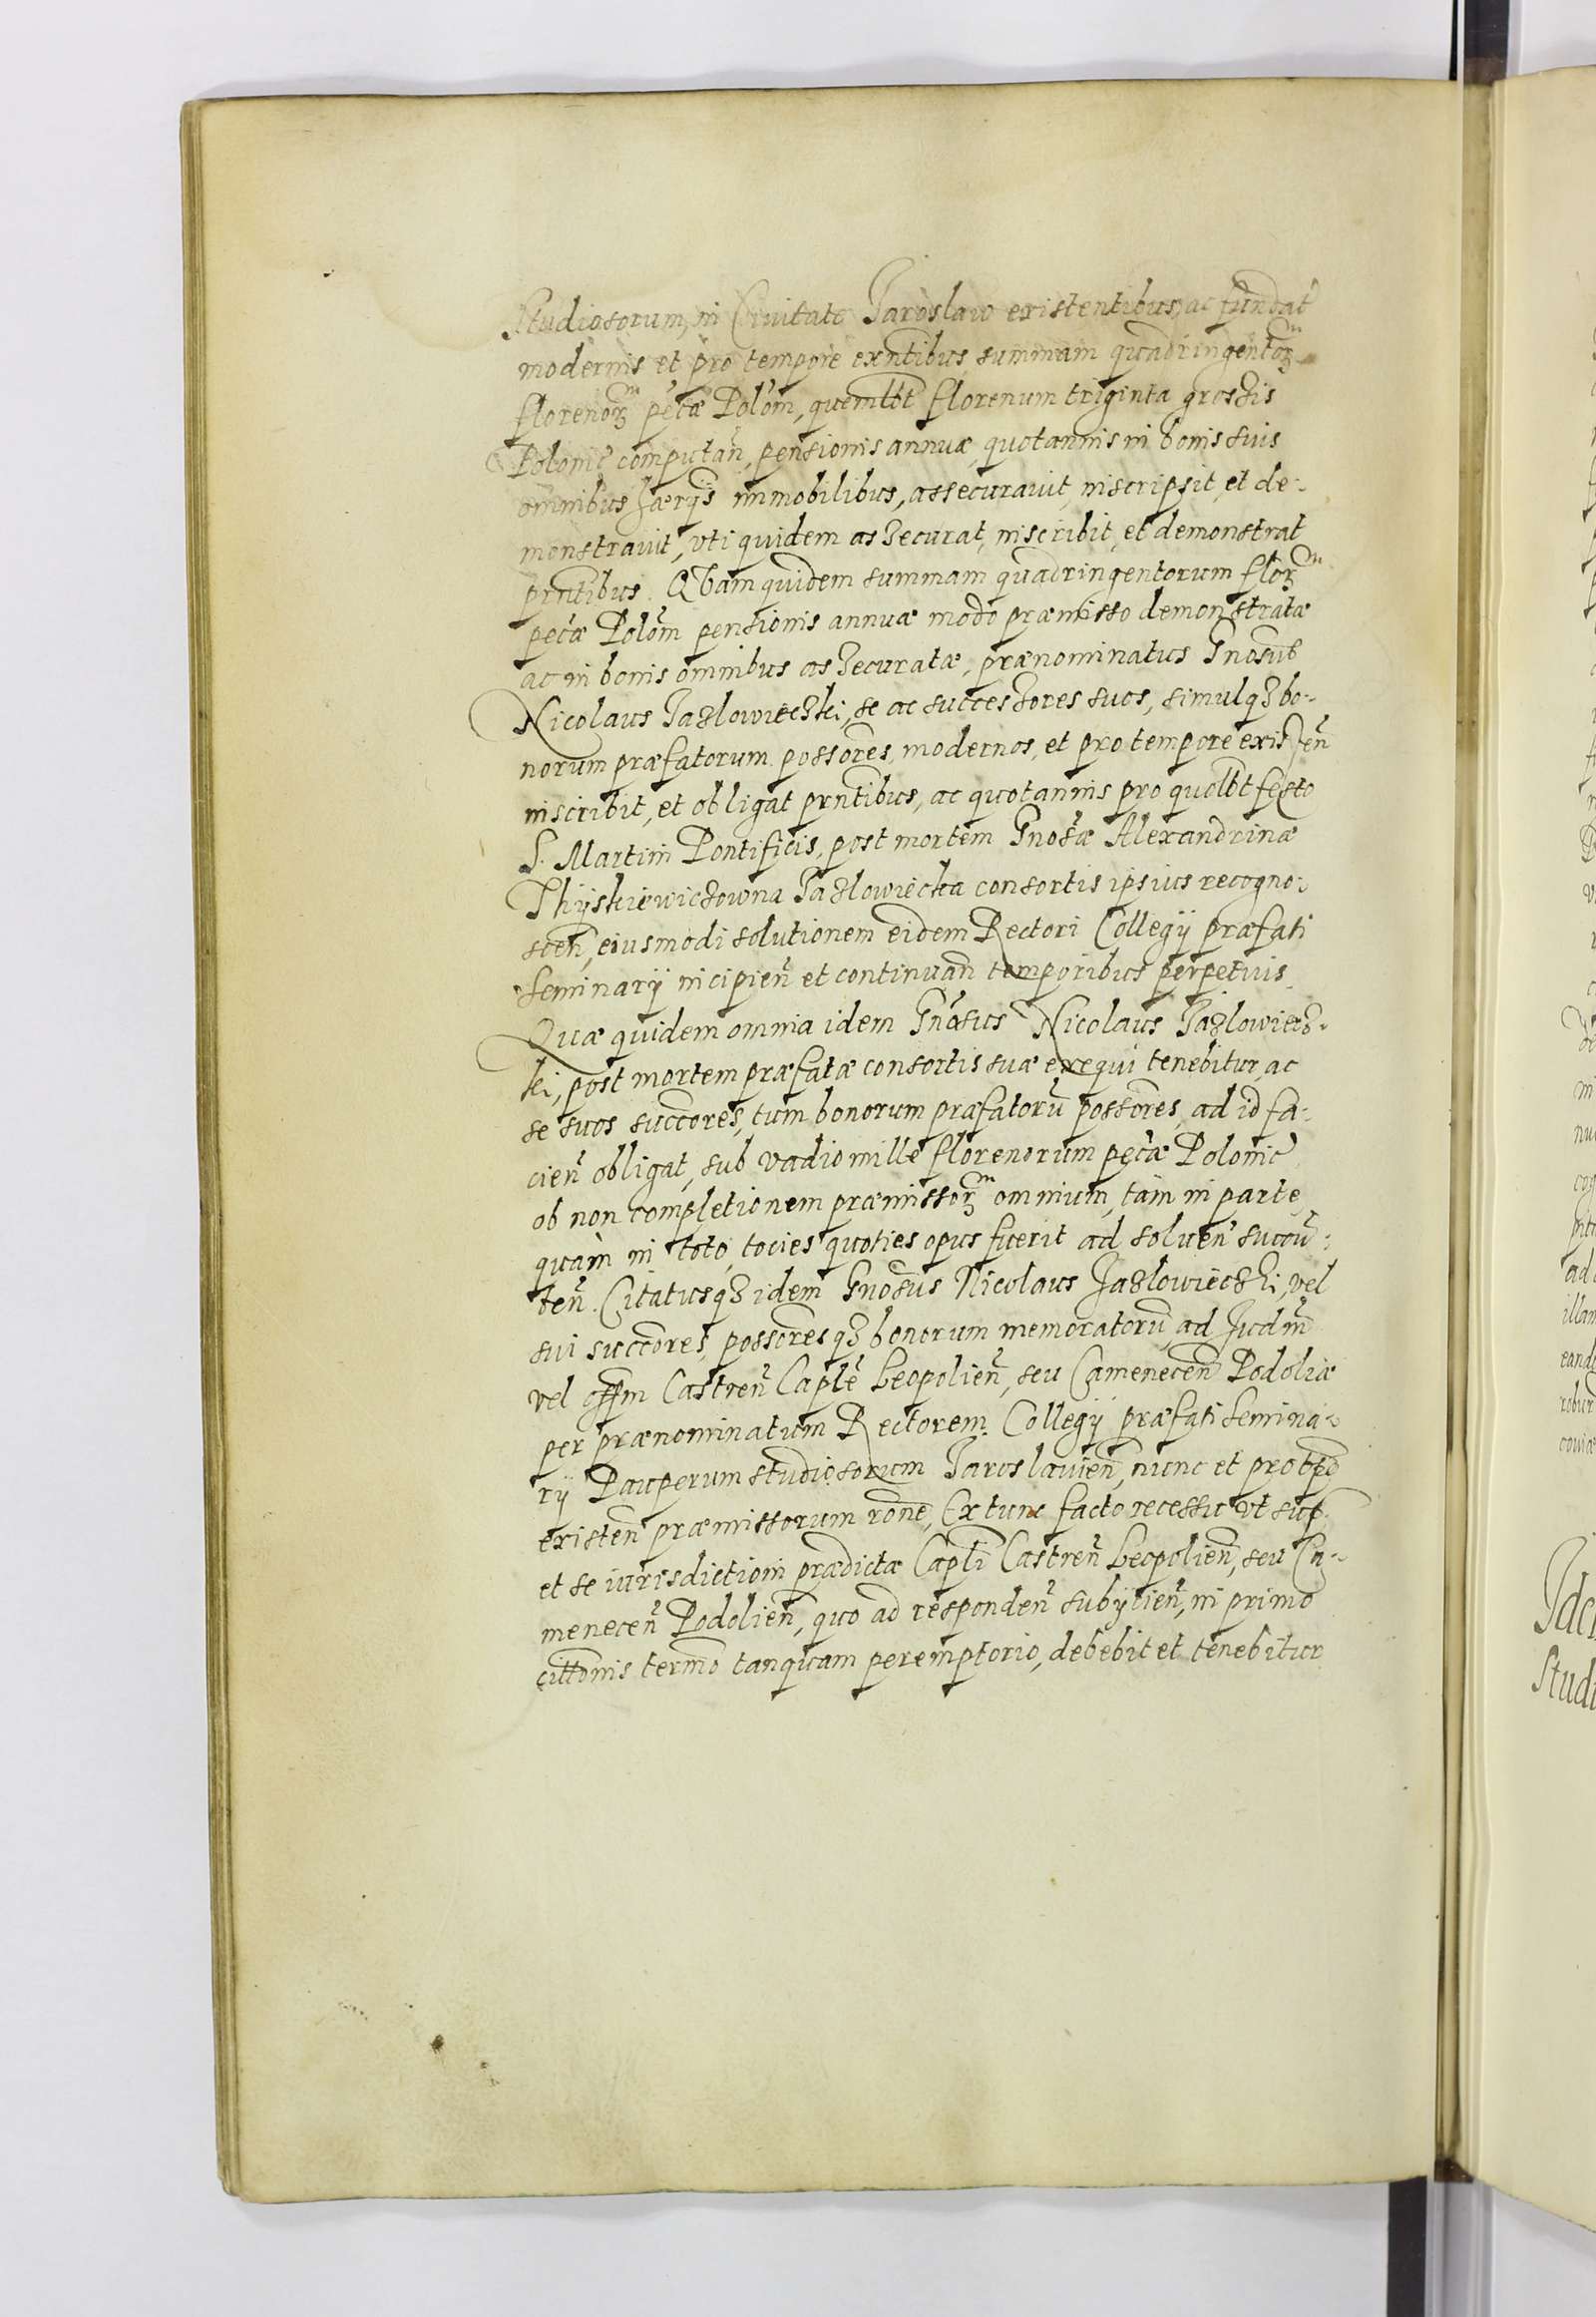 Studiosorum, in Civitate Jaroslaw existentibus, ac fundat̃
modernis et pro tempore exñtibus, summam quadringentorꝫ
florenorꝫ pec̃æ Polõm, quemlt̃ florenum triginta groszis
Polonic̃ computañ, pensionis annuæ, quotannis in bonis suis
omnibus hærijs immobilibus, assecuravit, inscripsit, et de-
monstravit, vti quidem assecurat, inscribit, et demonstrat
prñtibus. Qvam quidem summam quadringentorum florꝫ
pec̃æ Polõm pensionis annuæ modo præmisso demonstratæ
ac in bonis omnibus assecuratæ, prænominatus Gñosus
Nicolaus Jazlowieczki, se ac successores suos, simulqꝫ bo-
norum præfatorum possõres, modernos, et pro tempore existeñ
inscribit, et obligat prñtibus, ac quotannis pro quolt̃ festo
S. Martini Pontificis, post mortem Gñosæ Alexandrinæ
Thyskiewiczowna Jazlowiecka consortis ipsius recogno-
sceñ, eiusmodi solutionem eidem Rectori Collegij præfati
Seminarij incipieñ et continuañ temporibus perpetuis.
Quæ quidem omnia idem Gñosus Nicolaus Jazlowiecz-
ki, post mortem præfatæ consortis suæ exequi tenebitur, ac
se suos succõres, tum bonorum præfatorũ possõres, ad id fa-
cieñ obligat, sub vadio mille florenorum pec̃æ Polonic̃
ob non completionem præmissorꝫ omnium, tam in parte,
quam in toto, tocies quoties opus fuerit ad solueñ succũ-
beñ. Citatusqꝫ idem Gñosus Nicolaus Jazlowieczki, vel
sui succõres, possõresqꝫ bonorum memoratorũ, ad Judm̃
vel offm̃ Castreñ Caplẽ Leopolieñ, seu Cameneceñ Podoliæ
per prænominatum Rectorem Collegij præfati Semina-
rij Pauperum studiosorum Jaroslavieñ, nunc et pro tp̃e
existeñ præmissorum rõne, Ex tunc facto recessu vt supr̃
et se iurisdictioni prædictæ Capt̃i Castreñ Leopolieñ, seu Ca-
meneceñ Podolieñ, quo ad respondeñ subijcieñ, in primo
citt̃onis term̃o tanquam peremptorio, debebit et tenebitur